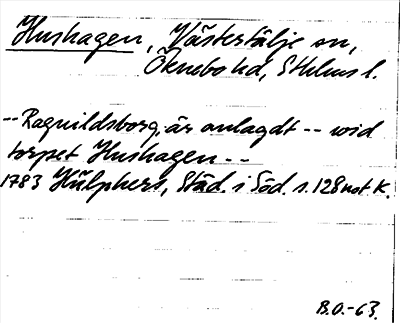 Hushagen, Västertälje sn,
Öknebo hd, Sthlms l.
-- Ragnildsborg, är anlagdt -- wid
torpet Hushagen --
1783 Hülphers, Städ. i Söd. s. 128 not K.
B.O.-63.